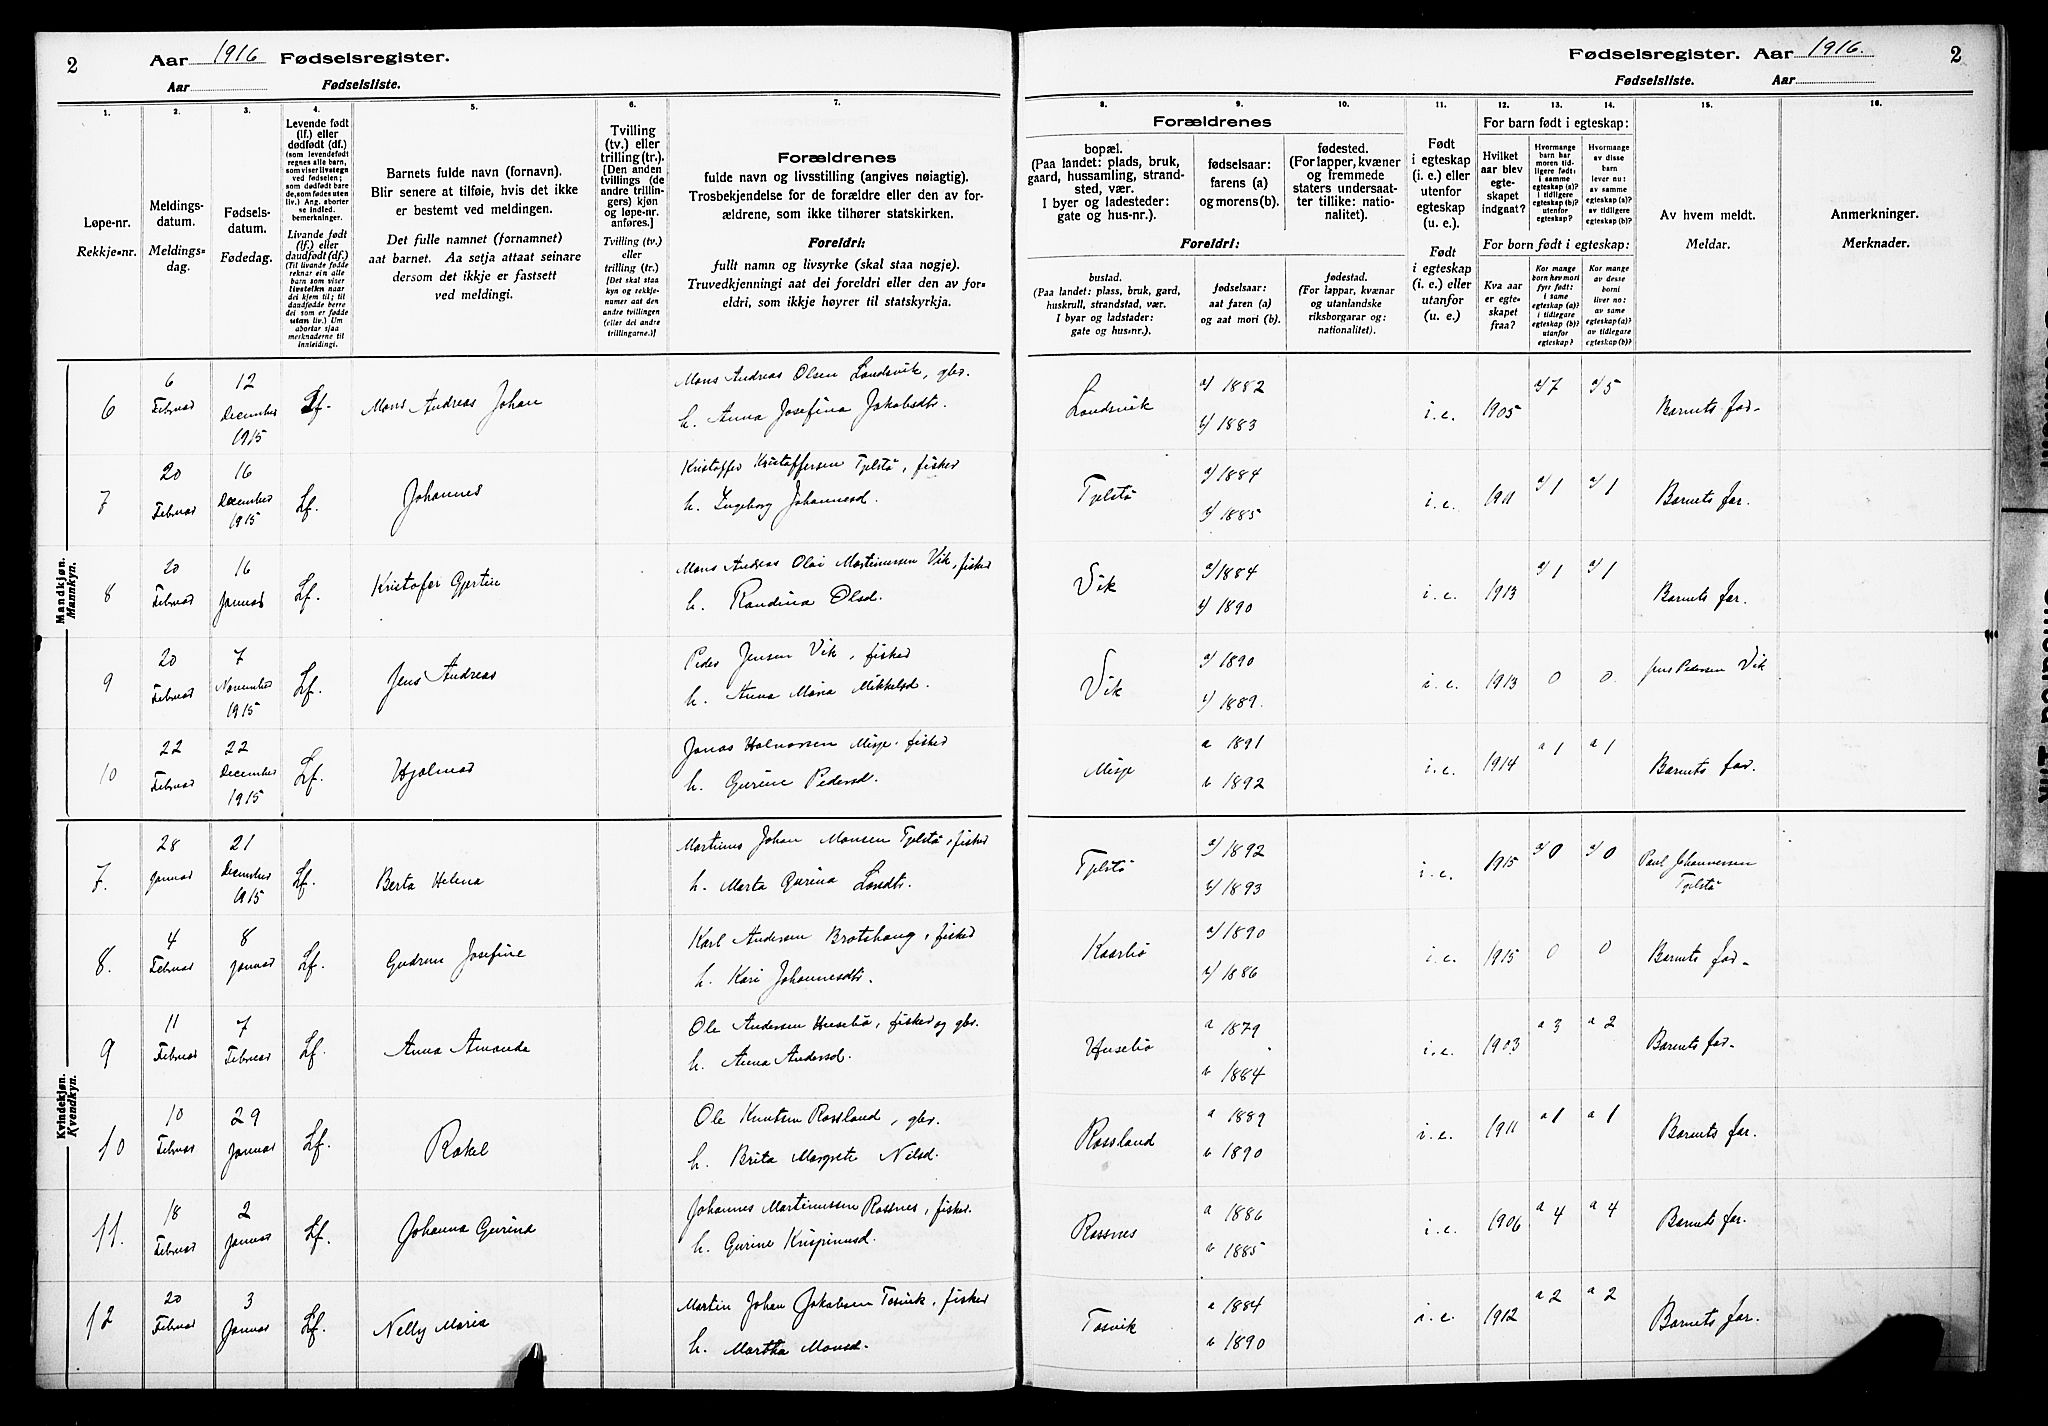 2
Aar 1916 Fødselsregister.
Aar
Fødselsliste.
1.
2.
3.
4.
5.
6.
7.
Løpe-nr.
Rekkje-nr.
Meldings-
datum.
Meldings-
dag.
Fødsels-
datum.
Fødedag.
Levende født
(lf.) eller
dødfødt (df.)
(som levendefødt
regnes alle barn,
som viser livstegn
ved fødselen;
som dødfødt bare
de, som fødes uten
liv.) Ang. aborter
se indled.
bemerkninger.
Livande født
(lf.) eller
daudfødt (df.)
(Til livande fødde
reknar ein alle
barn som viser
livsteikn naar
dei kjem til; til
daudfødde berre
dei som er fødde
utan liv.) Um
abortar sjaa
merknaderne til
innleidingi.
Barnets fulde navn (fornavn).
Blir senere at tilføie, hvis det ikke
er bestemt ved meldingen.
Det fulle namnet (fornamnet)
aat barnet. Aa setja attaat seinare
dersom det ikkje er fastsett
ved meldingi.
Tvilling
(tv.) eller
trilling (tr.).
(Den anden
tvillings (de
andre trillin-
gers) kjøn
og løpe-nr.
anføres.)
Tvilling (tv.)
eller
trilling (tr.)
(Det skal staa
kyn og rekkje-
numer aat den
andre tvillingen
(eller dei andre
trillingarne.)
Forældrenes
fulde navn og livsstilling (angives nøiagtig).
Trosbekjendelse for de forældre eller den av for-
ældrene, som ikke tilhører statskirken.
Foreldri:
fullt namn og livsyrke (skal staa nøgje).
Truvedkjenningi aat dei foreldri eller den av for-
eldri, som ikkje høyrer til statskyrkja.
Mandkjøn.
Mannkyn.
6
6
Februar
12
December
1915
Lf.
Mons Andreas Johan
Mons Andreas Olsen Landsvik, gbr.
h. Anna Josefina Jakobsdtr.
7
20
Februar
16
December
1915
Lf.
Johannes
Kristoffer Kristoffersen Tjelstø, fisker
h. Ingeborg Johannesd.
8
20
Februar
16
Januar
Lf.
Kristofer Gjertin
Mons Andreas Olai Martinussen Vik, fisker
h. Randina Olsd.
9
20
Februar
7
November
1915
Lf.
Jens Andreas
Peder Jensen Vik, fisker
h. Anna Maria Mikkelsd.
10
22
Februar
22
December
1915
Lf.
Hjalmar
Jonas Halvorsen Misje, fisker
h. Gurine Pedersd.
Kvindekjøn.
Kvendkyn.
7.
28
Januar
21
December
1915
Lf.
Berta Helena
Martinus Johan Monsen Tjelstø, fisker
h. Marta Gurina Larsdtr.
8.
4
Februar
8
Januar
Lf.
Gudrun Josefine
Karl Andersen Bratshaug, fisker
h. Kari Johannesdtr.
9
11
Februar
7
Februar
Lf.
Anna Amanda
Ole Andersen Husebø, fisker og gbr.
h. Anna Andersd.
10
10
Februar
29
Januar
Lf.
Rakel
Ole Knutsen Rossland, gbr.
h. Brita Margrete Nilsd.
11.
18
Februar
2
Januar
Lf.
Johanna Gurina
Johannes Martinussen Rossnes, fisker.
h. Gurine Krispinusd.
12
20
Februar
3
Januar
Lf.
Nelly Maria
Martin Johan Jakobsen Tosvik, fisker
h. Martha Monsd.
Fødselsregister. Aar 1916.
2
Fødselsliste.
Aar
8.
9.
10.
11.
12.
13.
14.
15.
16.
Forældrenes
bopæl.
(Paa landet: plads, bruk,
gaard, hussamling, strand-
sted, vær.
I byer og ladesteder:
gate og hus-nr.).
fødselsaar:
farens (a)
og morens (b).
fødested.
(For lapper, kvæner
og fremmede
staters undersaat-
ter tillike: natio-
nalitet).
Foreldri:
bustad.
(Paa landet: plass, bruk, gard,
huskrull, strandstad, vær.
I byar og ladstader:
gate og hus-nr.).
fødselsaar:
aat faren (a)
og aat mori (b).
fødestad.
(For lappar, kvænar
og utanlandske
riksborgarar og:
nationalitet).
Født
i egteskap
(i. e.) eller
utenfor
egteskap
(u. e.).
Født
i egteskap
(i. e.) eller
utanfor
(u. e.)
For barn født i egteskap:
Hvilket
aar blev
egte-
skapet
indgaat?
Hvormange
barn har
moren tid-
ligere født:
i samme
egteskap (a)?
i tidligere
egteskap (b)?
utenfor
egteskap?
Hvormange
av disse
barn
lever nu:
av samme
egteskap (a)?
av tidligere
egteskap (b)?
For born født i egteskap:
Kva aar
er egte-
skapet
fraa?
Kor mange
born hev mori
fyrr født:
i same
egteskap (a)?
i tidlegare
egteskap (b)?
utanfor
egteskap?
Kor mange
av desse
borni
liver no:
av same
egteskap (a)?
av tidlegare
egteskap (b)?
Av hvem meldt.
Meldar.
Anmerkninger.
Merknader.
Landsvik
a) 1882
b) 1883
i. e.
1905
a) 7
a) 5
Barnets far.
Tjelstø
a) 1884
b) 1885
i. e.
1911
a) 1
a) 1
Barnets far.
Vik
a) 1884
b) 1890
i. e.
1913
a) 1
a) 1
Barnets far.
Vik
a) 1890
b) 1889.
i. e.
1913
0
0.
Jens Pedersen Vik
Misje
a 1891
b 1892
i. e.
1914
a 1
a 1
Barnets far.
Tjelstø
a) 1892
b) 1893
i. e.
1915
a) 0
a) 0
Paul Johannessen
Tjelstø
Kaarbø
a) 1890
b) 1886
i. e.
1915
0
0
Barnets far.
Husebø
a 1879
b 1884
i. e.
1903
a 3
a 2
Barnets far.
Rossland
a 1889
b 1890
i. e.
1911
a 1
a 1
Barnets far.
Rossnes
a 1886
b 1885
i. e.
1906
a 4
a 4
Barnets far.
Tosvik
a 1884
b 1890
i. e.
1912
a 2
a 2
Barnets far.